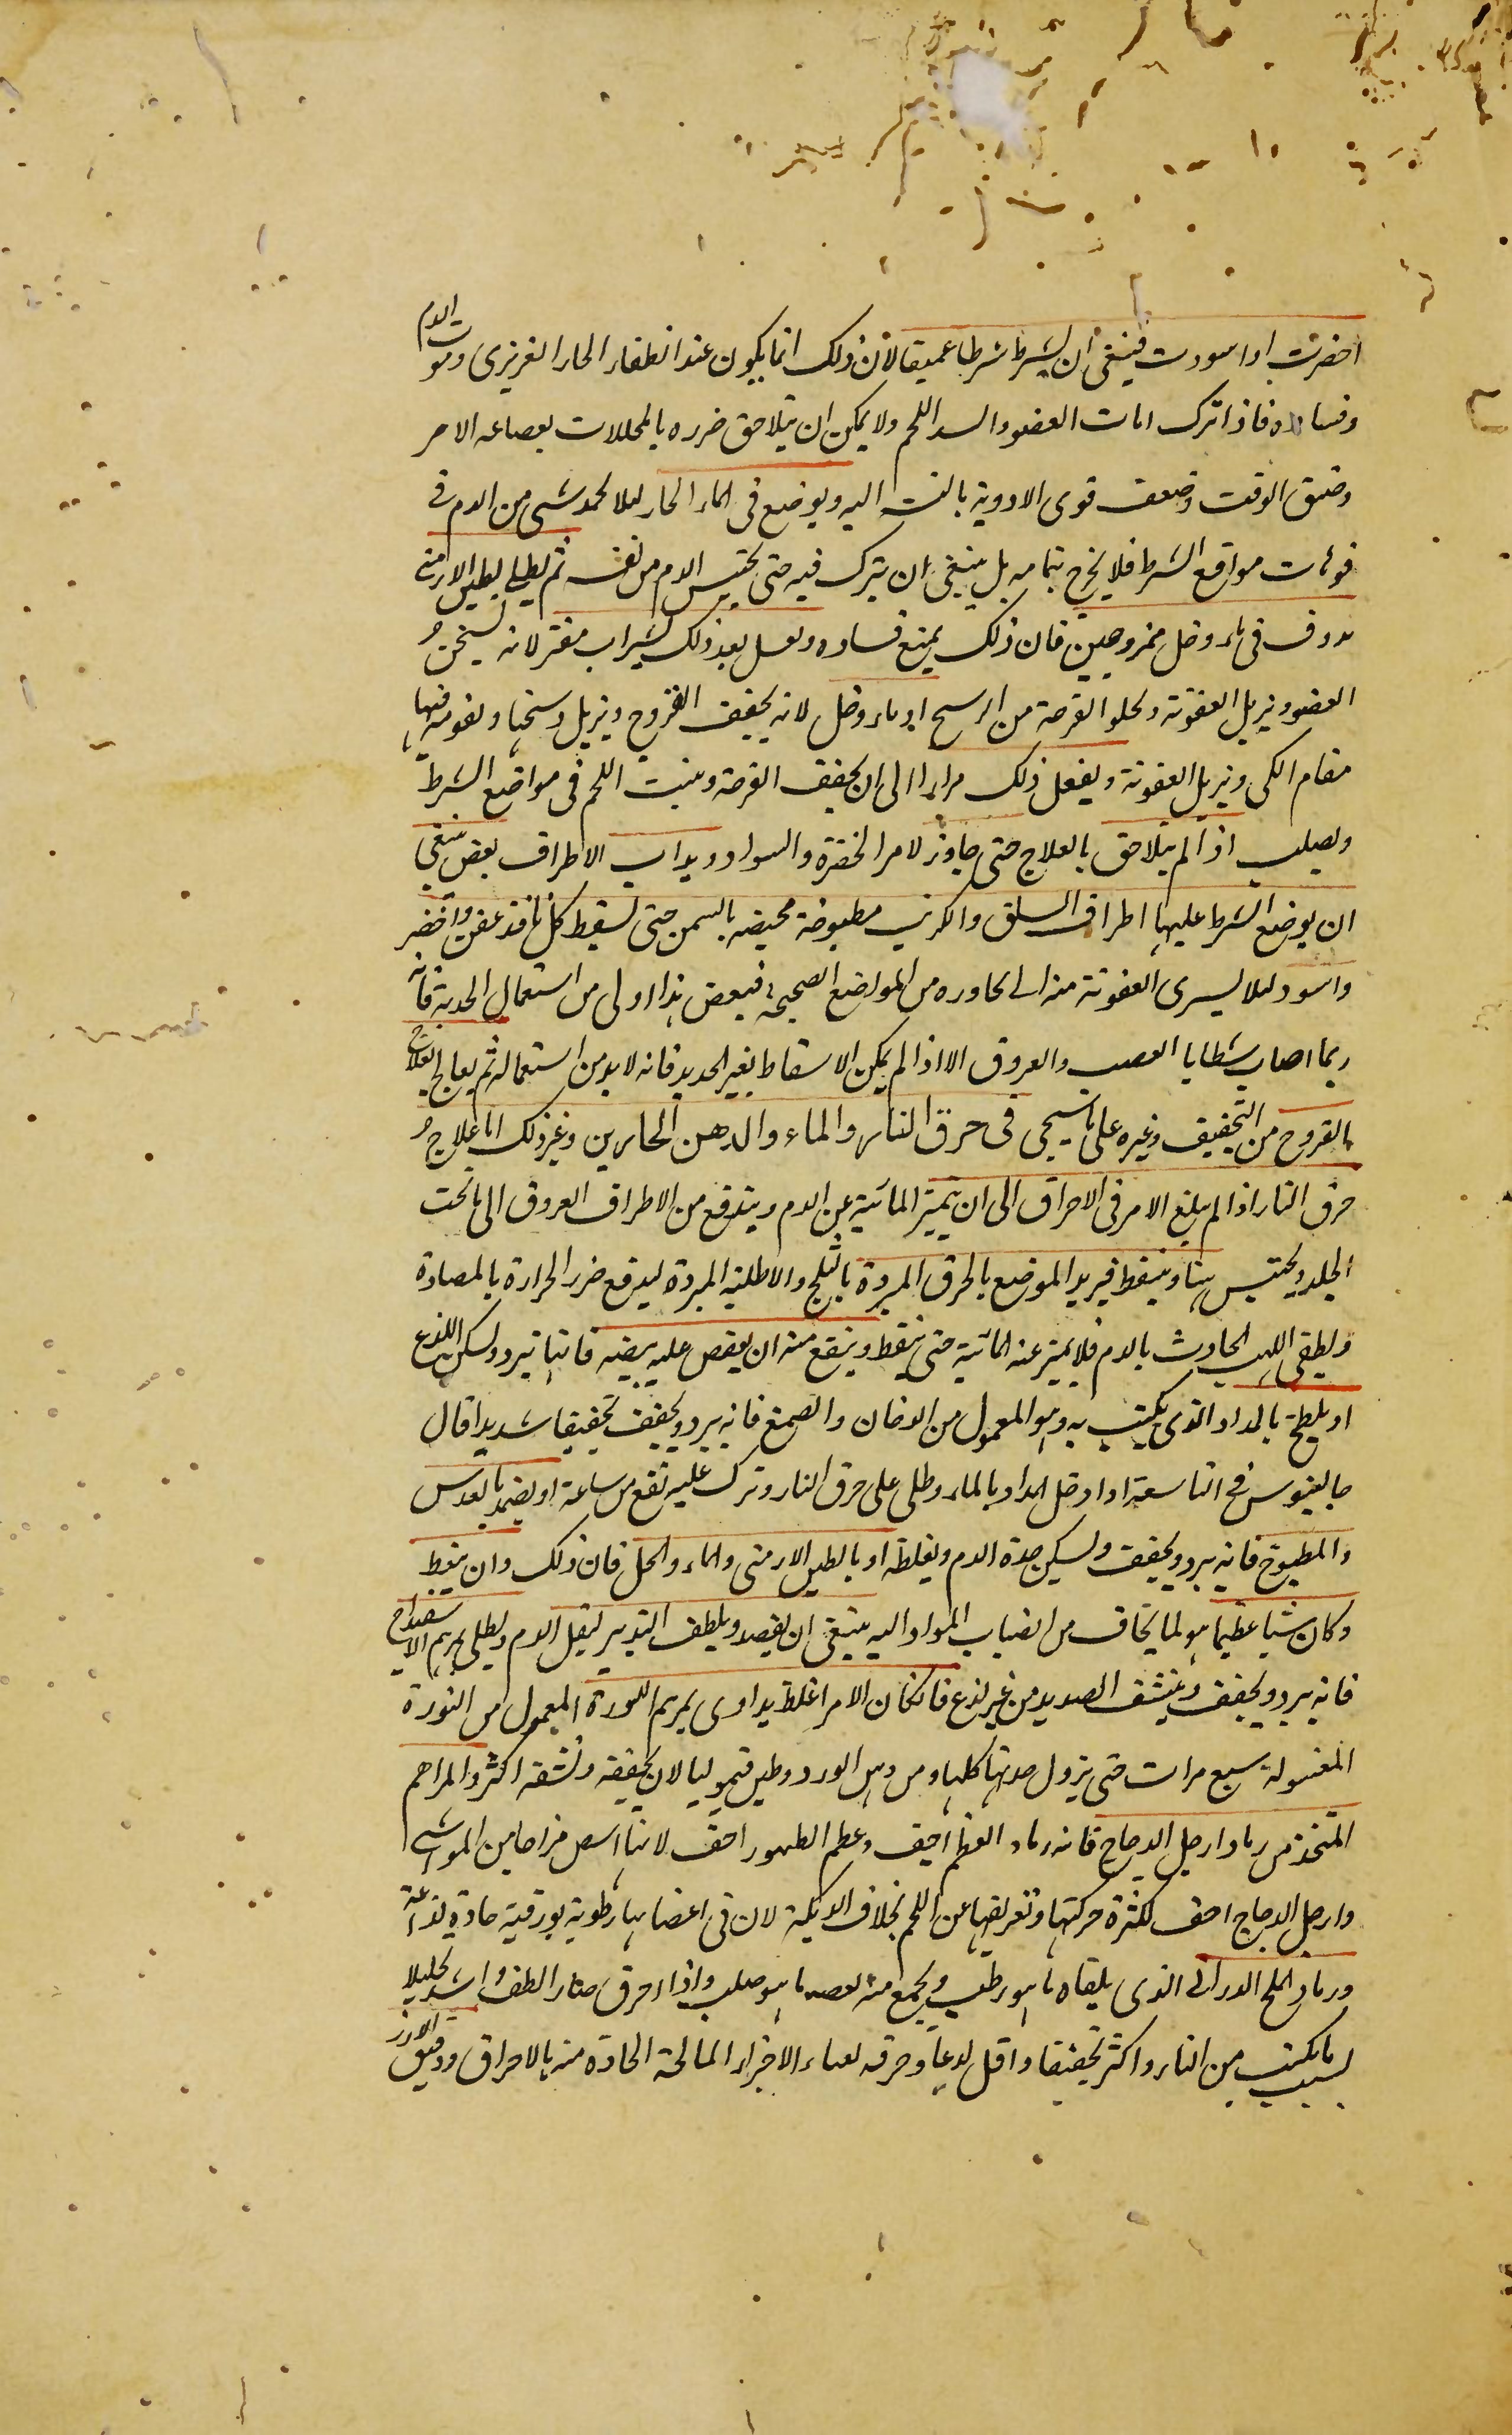 اخضرت او اسودت فينبغى ان يشرط شرطا عميقا لان ذلك انما يكون عند انطفاء الحار الغريزى وموت الدم
وفساده فاذا ترك امات العضو وافسد اللحم ولا يمكن ان يتلاحق ضرره بالمحللات لعصاعه الامر
وضيق الوقت وضعف قوى الادوية بالنسبة اليه ويوضع فى الماء الحار لئلا يجمد شى من الدم فى
فوهات مواقع الشرط فلا يخرج بتمامه بل ينبغى ان يترك فيه حتى يحتبس الدم من نفسه ثم يطلى بطين الارمنى
مدوف فى ماء وخل ممزوجين فان ذلك يمنع فساده ويغسل بعد ذلك بشراب مفتر لانه يسخن
العضو ويزيل العفونة ويجلو القرحة من الوسخ او بماء وخل لانه يجفف القروح ويزيل وسخها وعفونتها
مقام الكى ويزيل العفونة ويفعل ذلك مرارا الى ان يجفف القرحة وينبت اللحم فى مواضع الشرط
ويصلب اذا لم يتلاحق بالعلاج حتى جاوز الامر الخضرة والسواد وبدات الاطراف بعض ينبغى
ان يوضع الشرط عليها اطراف السلق والكرنب مطبوخة محيضه بالسمن حتى يسقط كل ما قد عفن واخضر
واسود لئلا يسرى العفونة منه الى مجاوره من المواضع الصحيحة فبعض هذا اولى من استعمال الحديد فانه
ربما اصاب شظايا العصب والعروق الا اذا لم يمكن الاسقاط بغير الحديد فانه لا بد من استعماله ثم يعالج بعلاج
القروح من التجفيف وغيره على ما سيجى فى حرق النار والماء والدهن الحارين وغير ذلك اما علاج
حرق النار اذا لم يبلغ الامر فى الاحراق الى ان يتميز المائية عن الدم ويندفع من الاطراف العروق الى ما تحت
الجلد ويحتبس هناك وينفط فيبرد الموضع بالخرق المبردة بالثلج والاطلية المبردة ليدفع ضرر الحرارة بالمضادة
ويطفى اللهب الحادث بالدم فلا يميز عنه المائية حتى ينفط وينفع منه ان يفقص عليه بيضه فانها تبرد ويسكن اللذع
او يلطخ بالمداد الذى يكتب به وهو المعمول من الدخان والصمغ فانه يبرد ويجفف تجفيفا شديدا قال
جالينوس فى التاسعة اذا دخل المداد بالماء وطلى على حرق النار وترك عليه نفع من ساعة او يضمد بالعدس
والمطبوخ فانه يبرد ويجفف ويسكن حدة الدم ويغلظه او بالطين الارمنى والماء والخل فان ذلك وان ينفط
وكان شيئا عظيما هو لما يخاف من انصباب المواد اليه ينبغى ان يفصد ويلطف التدبير ليقل الدم ويطلى بمرهم الاسفيداج
فانه يبرد ويجفف وينشف الصديد من غير لذع فان كان الامر اغلظ يداوى بمرهم النورة المعمول من النورة
المغسولة سبع مرات حتى يزول حدتها كلها ومن دهن الورد وطين قيموليا لان يجففه ونشفه اكثر والمراهم
المتخذ من رماد ارجل الدجاج فانه رماد العظم اجف وعظم الطيور اجف لانها اسض مزاجا من المواشى
وارجل الدجاج اجف لكثرة حركتها وتعريضها عن اللحم بخلاف الديكة لان فى اعضائها رطوبة بورقية حادة لذاعة
ورماد الملح الدرانى الذى يلقاه ما هو رطب ويجمع منه بعصه ما هو صلب واذا احرق صار الطف واشد تحليلا
بسبب ما يكتسب من النار واكثر تجفيفا واقل لذعا وحرقه لفناء الاجزاء المالحة الحادة منه بالاحراق ودقيق الارز